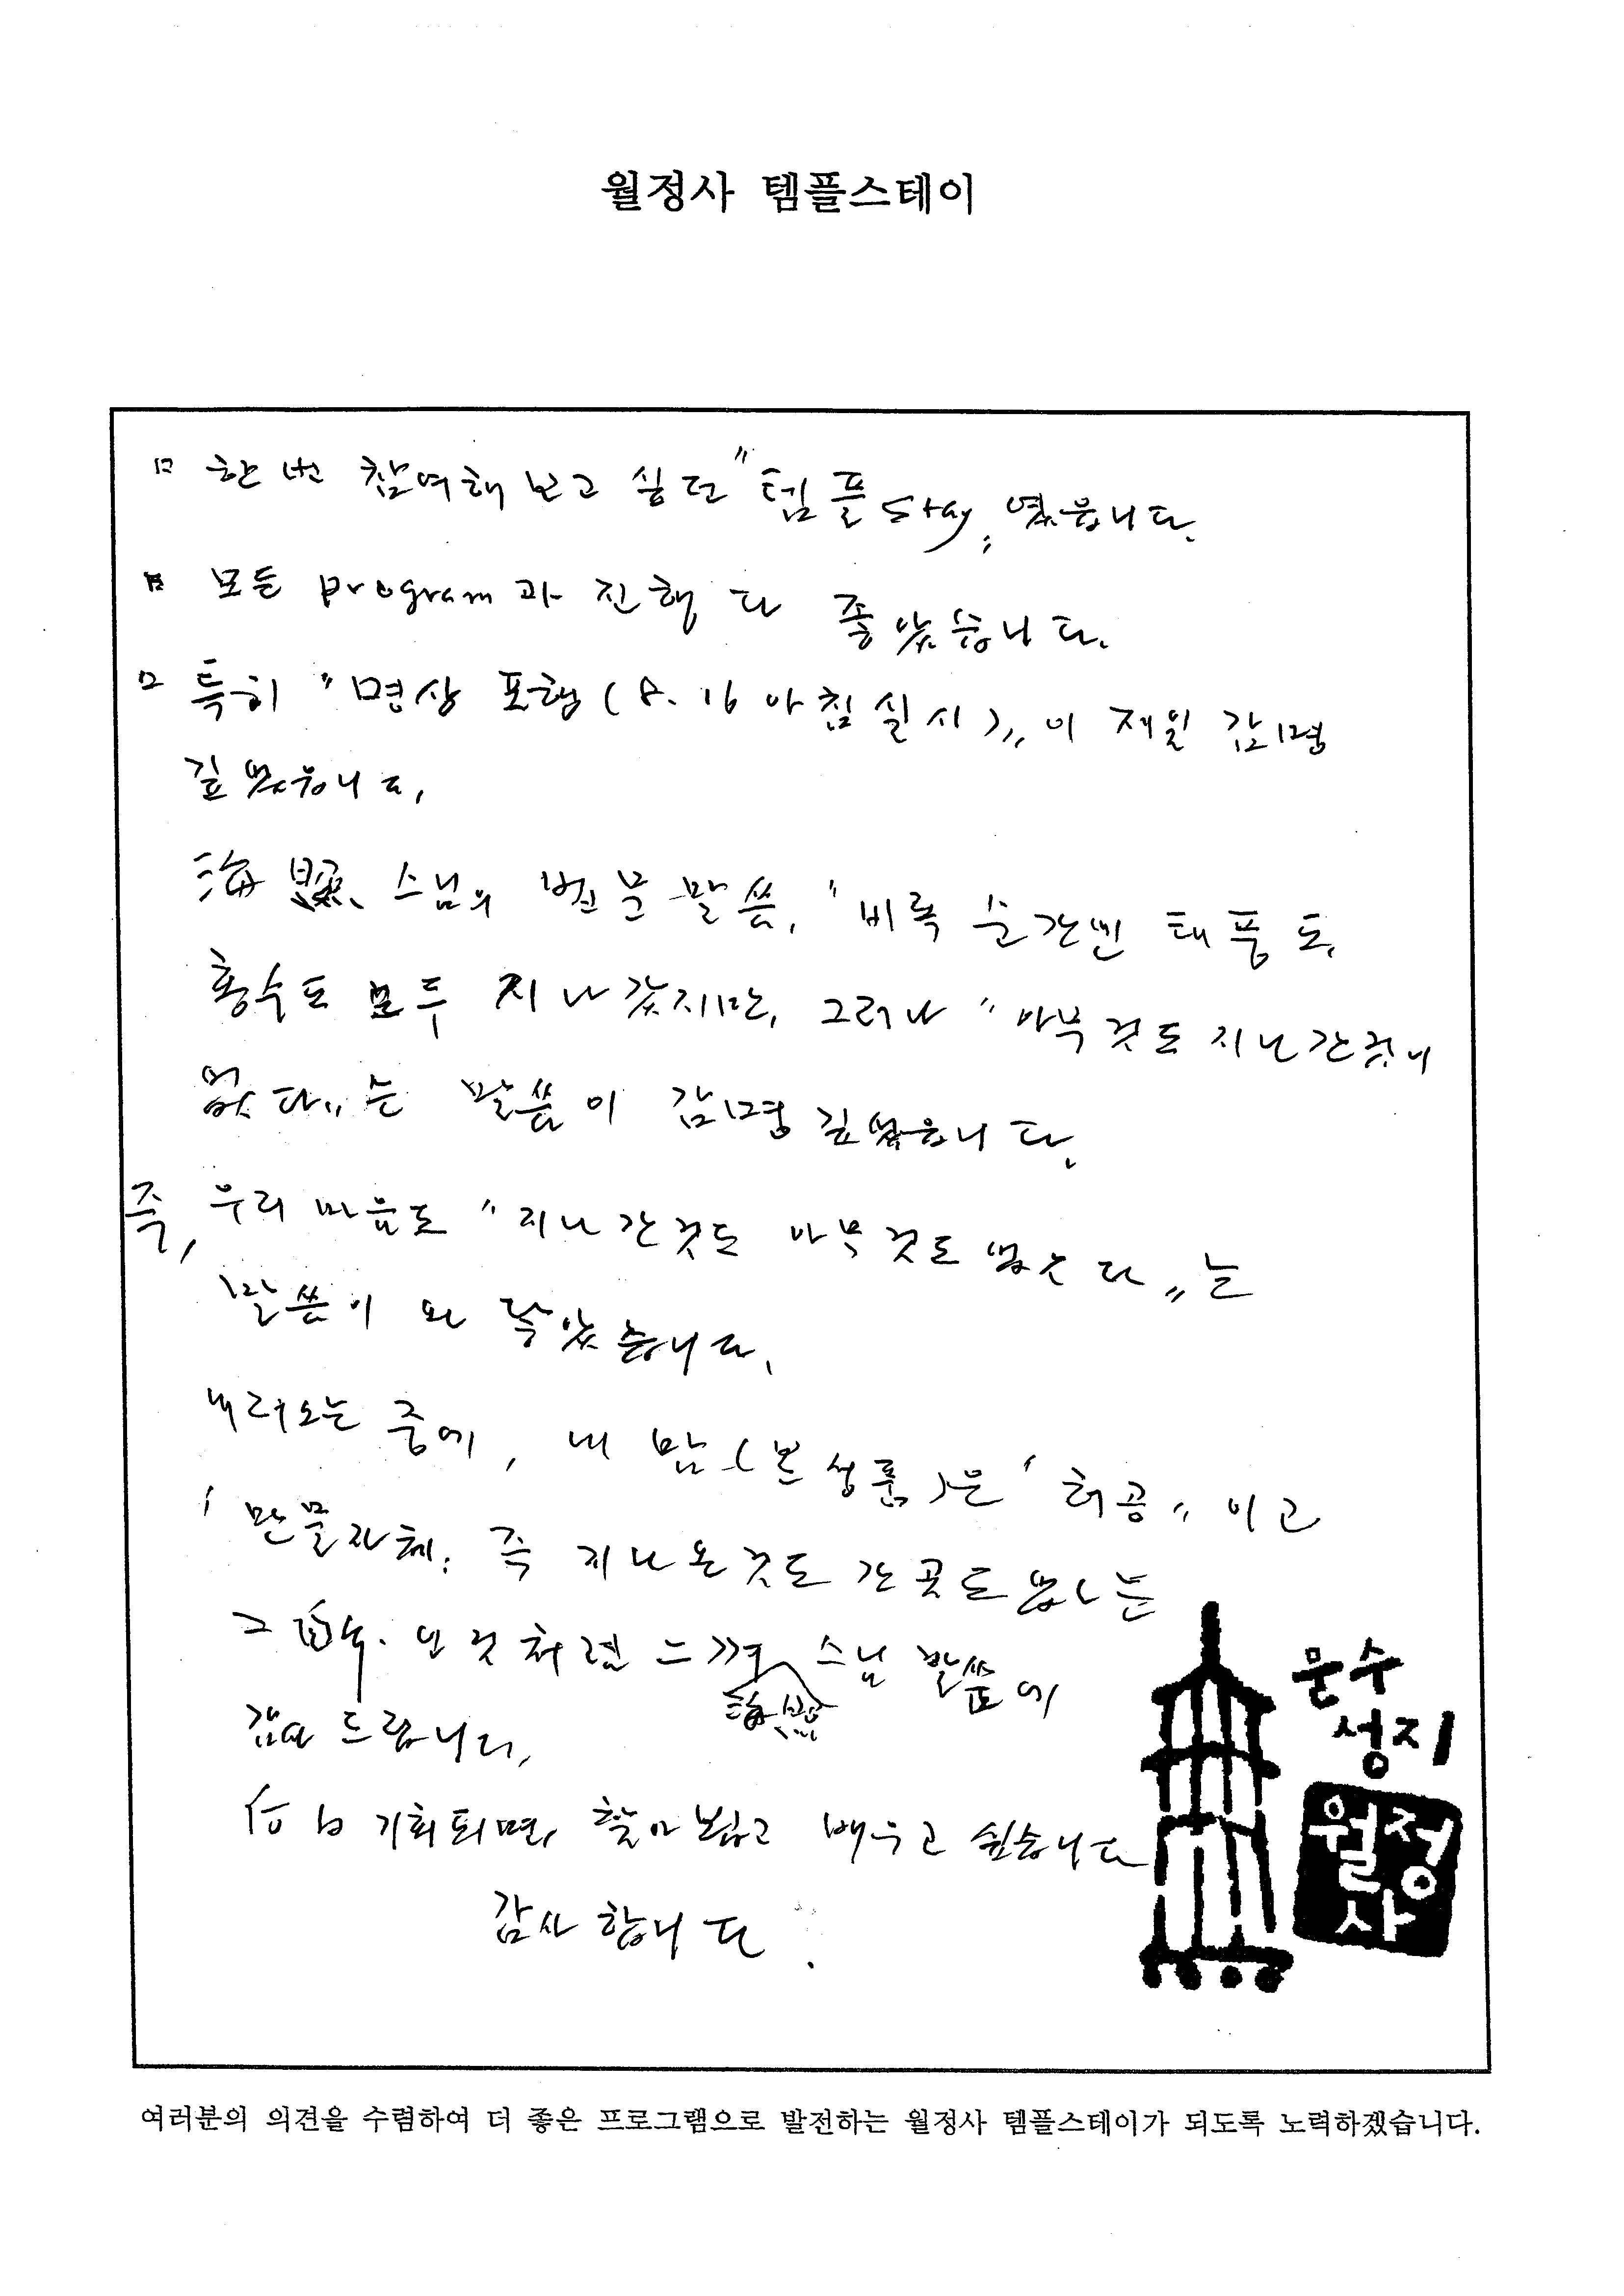 월정사 템플스테이
ㅁ 한번 참여해 보고 싶던 "템플stay" 였읍니다.
ㅁ 모든 program과 진행 다 좋았습니다.
ㅁ 특히 "명상 포행(8.16 아침실시)"이 제일 감명
깊었읍니다.
海 스님의 법문말씀, "비록 순간번 태풍도,
홍수도 모두 지나갔지만, 그러나 "아무것도 지난간것이
없다"는 말씀이 감명깊었읍니다.
즉, 우리 마음도 "지나간것도 아무것도 없다"는
말씀이 와 닿았습니다.
내려오는 중에, 내 맘(본성품)은 '허공"이고
'만물자체. 즉 지나온것도 간곳도 없는
그 것처럼 느껴 스님 말씀에
海
감사 드립니다.
기회되면, 찾아뵙고 배우고 싶습니다
감사합니다.
문수
성지
월정
사
여러분의 의견을 수렴하여 더 좋은 프로그램으로 발전하는 월정사 템플스테이가 되도록 노력하겠습니다.